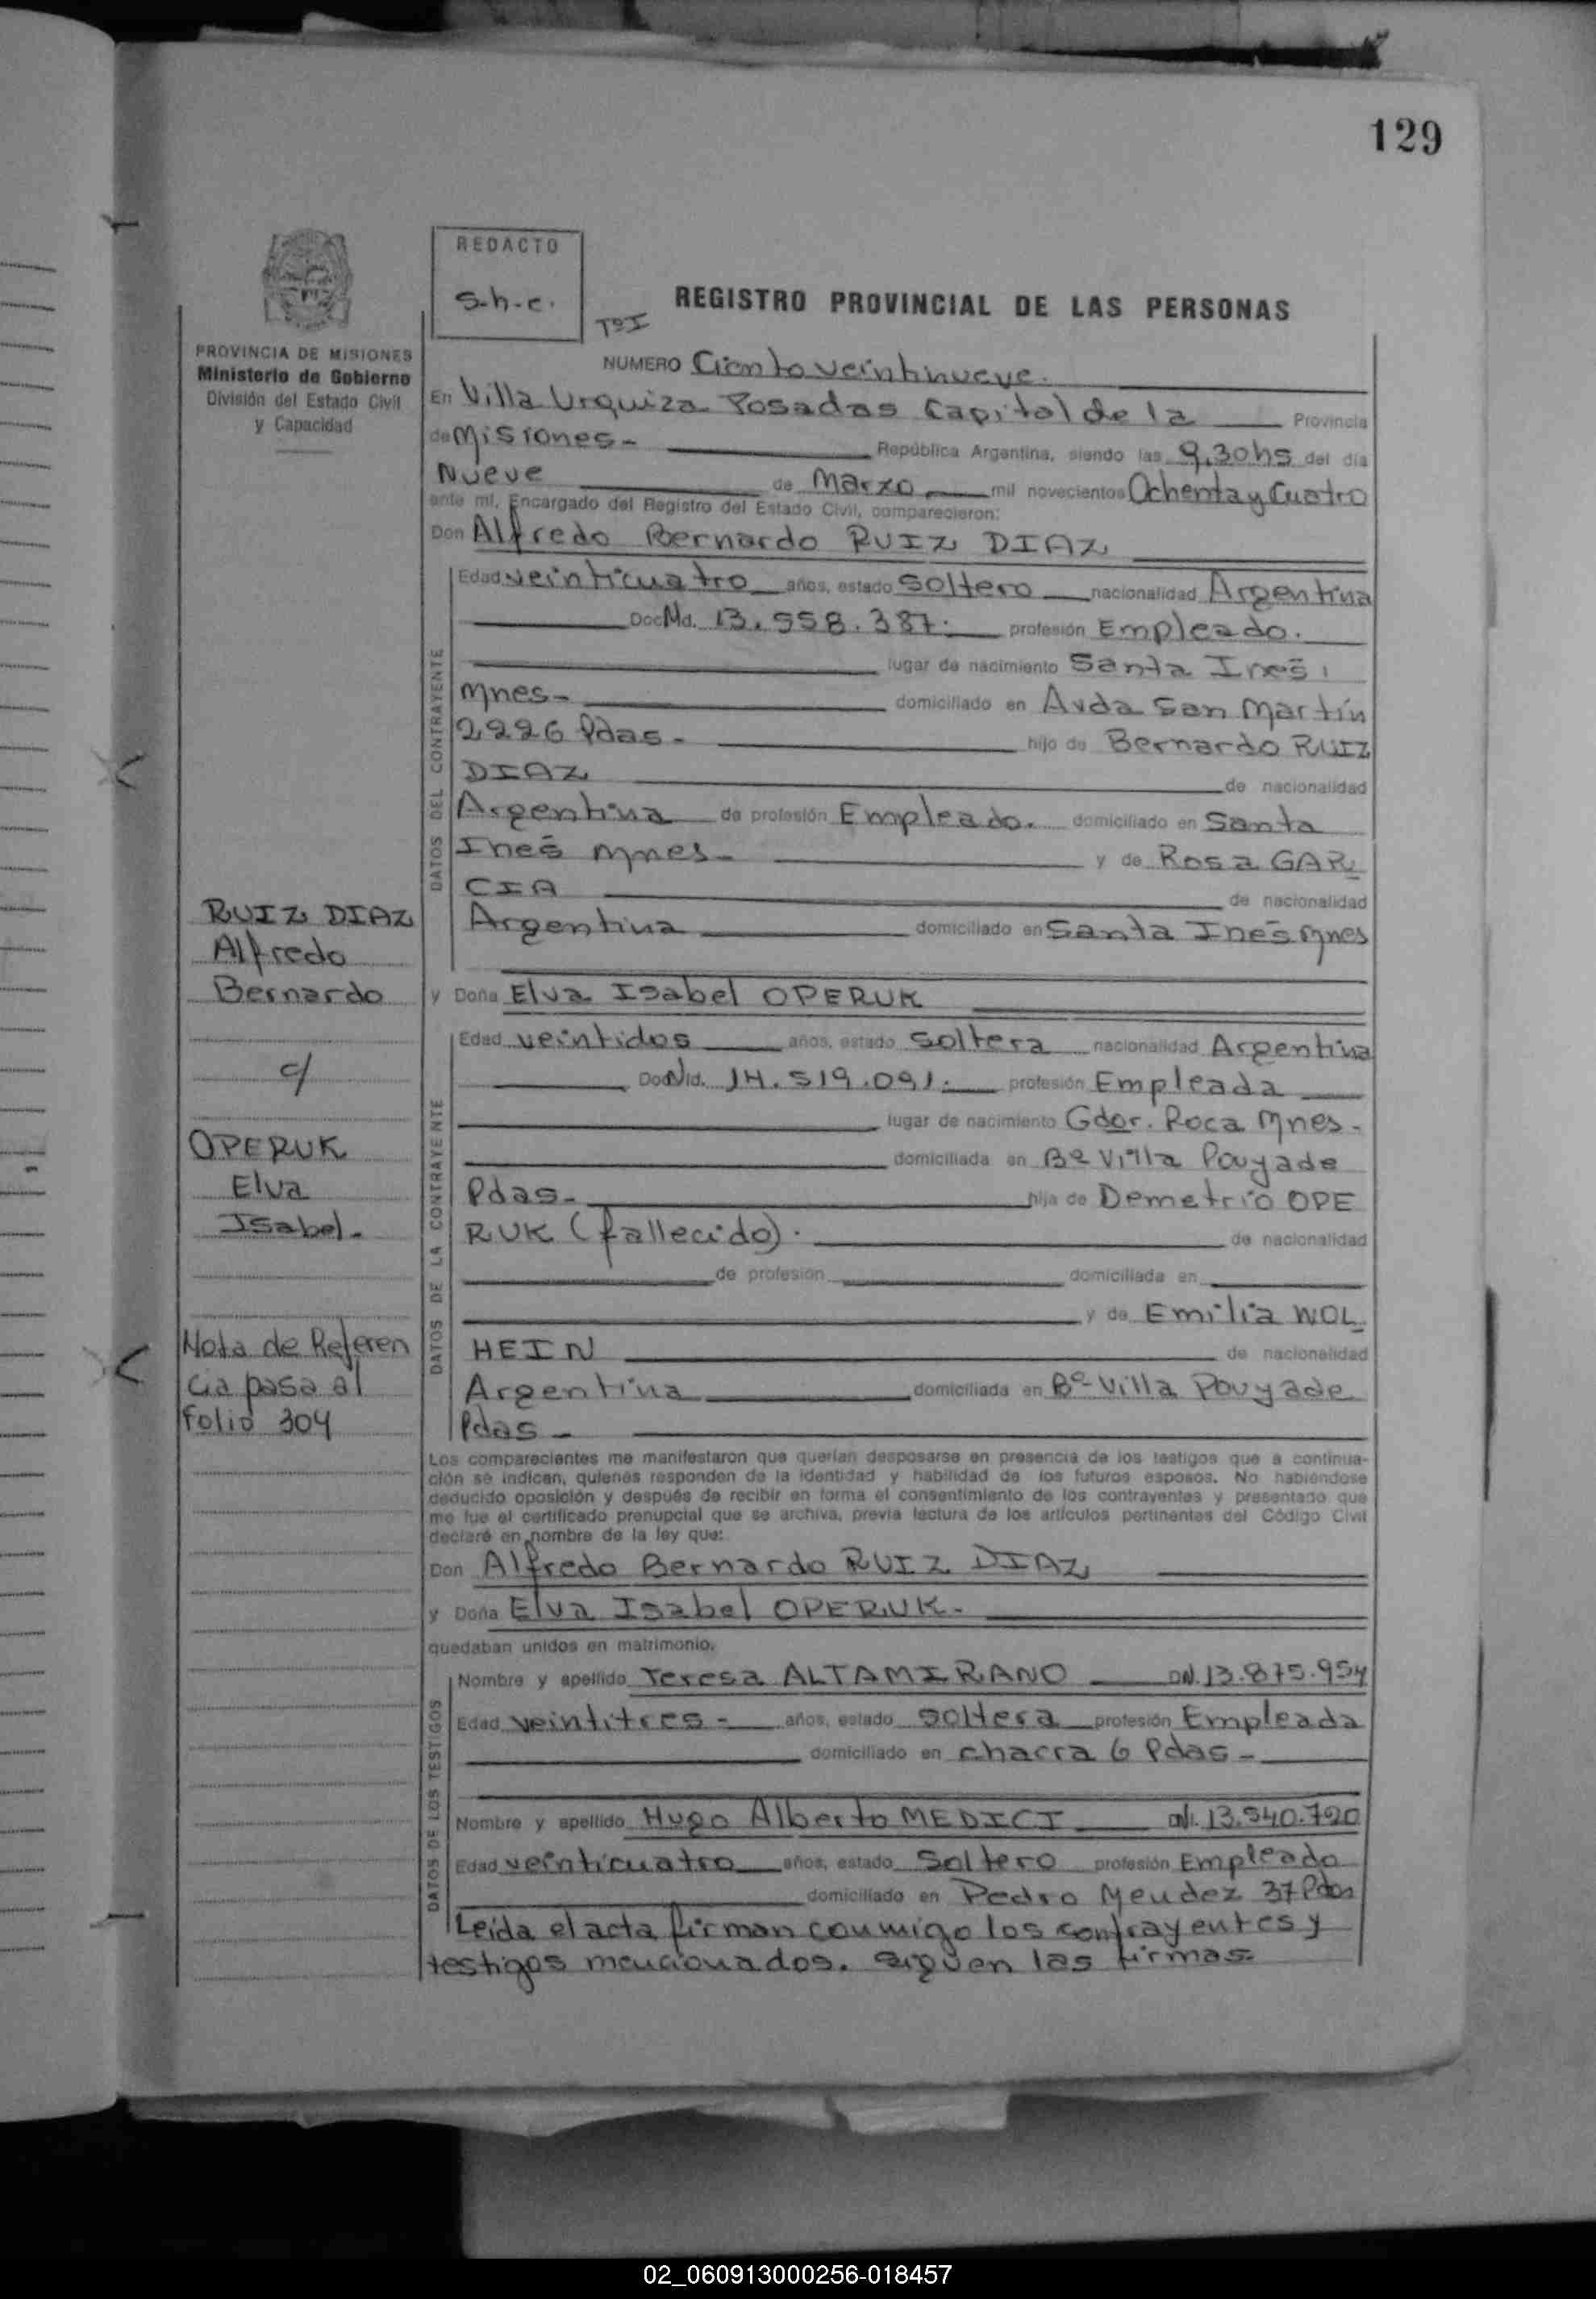 129
REDACTO
S-h-c.
REGISTRO PROVINCIAL DE LAS PERSONAS
Tº I
PROVINCIA DE MISIONES
Ministerio de Gobierno
División del Estado Civil
y Capacidad
NUMERO Ciento veintinueve.
En Villa Urquiza Posadas Capital de la Provincia
de Misiones- República Argentina, siendo las 9,30hs del día
Nueve de Marzo mil novecientos Ochenta y Cuatro
ante mí, Encargado del Registro del Estado Civil, comparecieron:
Don Alfredo Bernardo RUIZ DIAZ
DATOS DEL CONTRAYENTE
Edad veinticuatro años, estado Soltero nacionalidad Argentina
Doc. 13.558.387. profesión Empleado.
lugar de nacimiento Santa Inés,
Mnes- domiciliado en Avda San Martín
2226 Pdas- hijo de Bernardo RUIZ
DIAZ de nacionalidad
Argentina de profesión Empleado. domiciliado en Santa
Inés Mnes- y de Rosa GAR
CIA de nacionalidad
Argentina domiciliado en Santa Inés Mnes
y Doña Elva Isabel OPERUK
DATOS DE LA CONTRAYENTE
Edad veintidos años, estado Soltera nacionalidad Argentina
Doc. 14.519.091. profesión Empleada
lugar de nacimiento Gdor. Roca Mnes-
domiciliada en Bº Villa Pouyade
Pdas- hija de Demetrio OPE
RUK (fallecido). de nacionalidad
de profesión domiciliada en
y de Emilia WOL
HEIN de nacionalidad
Argentina domiciliada en Bº Villa Pouyade
Pdas-
RUIZ DIAZ
Alfredo
Bernardo
c/
OPERUK
Elva
Isabel-
Nota de Referen
cia pasa al
Folio 304
Los comparecientes me manifestaron que querían desposarse en presencia de los testigos que a continua-
ción se indican, quienes responden de la identidad y habilidad de los futuros esposos. No habiéndose
deducido oposición y después de recibir en forma el consentimiento de los contrayentes y presentado que
me fue el certificado prenupcial que se archiva, previa lectura de los artículos pertinentes del Código Civil
declaré en nombre de la ley que:
Don Alfredo Bernardo RUIZ DIAZ
y Doña Elva Isabel OPERUK-
quedaban unidos en matrimonio.
DATOS DE LOS TESTIGOS
Nombre y apellido Teresa ALTAMIRANO DNI. 13.875.954
Edad veintitres- años, estado Soltera profesión Empleada
domiciliado en chacra 6 Pdas-
Nombre y apellido Hugo Alberto MEDICI DNI. 13.540.720
Edad veinticuatro años, estado Soltero profesión Empleado
domiciliado en Pedro Mendez 37 Pdas
Leída el acta firman conmigo los contrayentes y
testigos mencionados. Siguen las firmas-
02_060913000256-018457